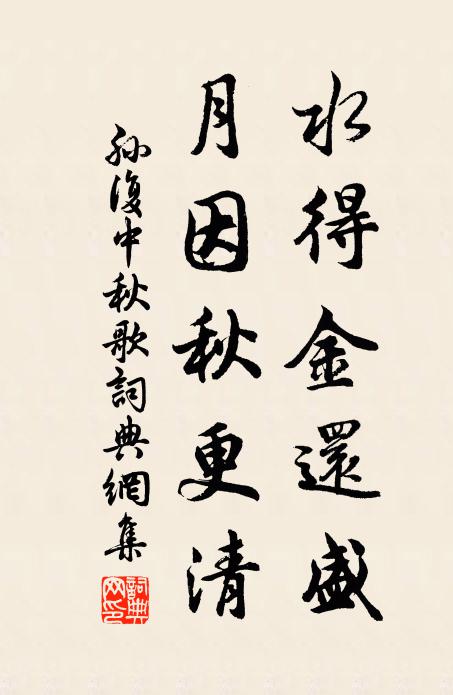 水得金還盛
月因秋更清
孫復中秋歌詞典網集
詞典網印